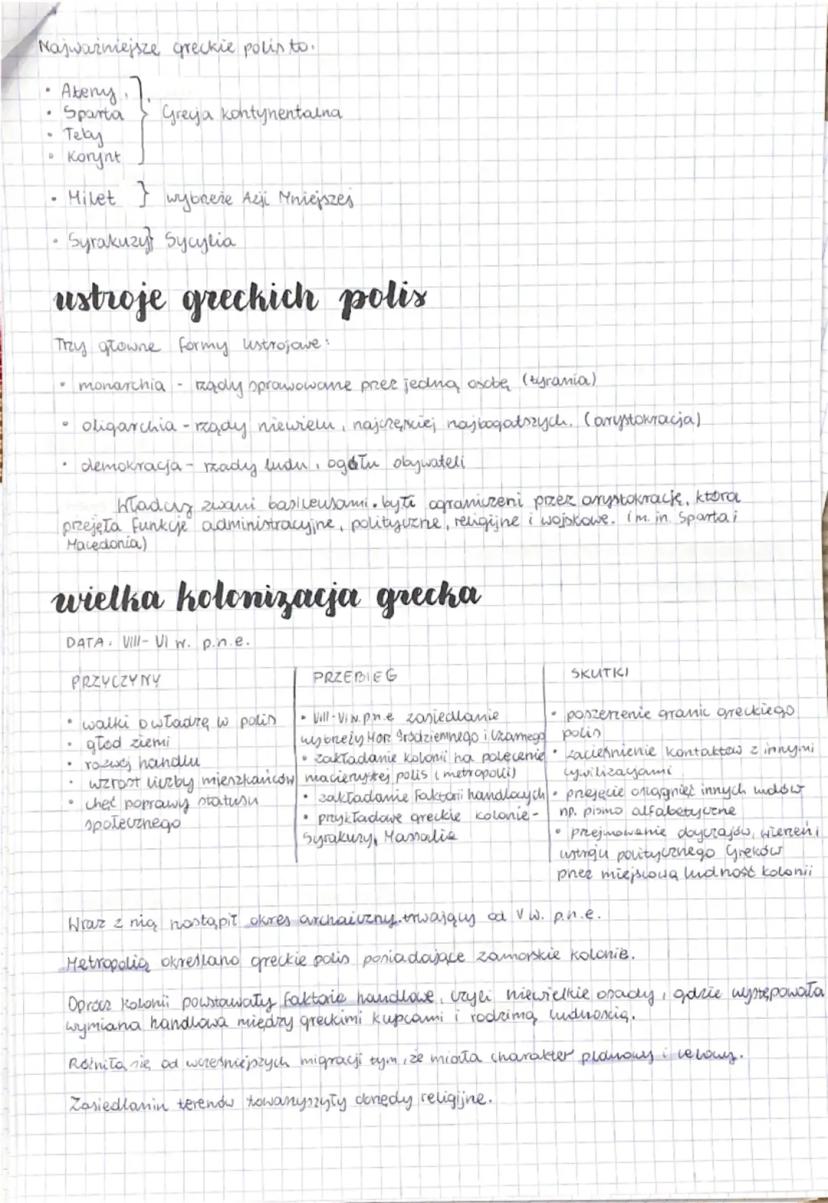 Najważniejsze greckie polis to:
• Ateny
• Sparta } Grecja kontynentalna
• Teby
• Korynt
• Milet } wybrzeże Azji Mniejszej
• Syrakuzy } Sycylia
ustroje greckich polis
Trzy główne formy ustrojowe:
• monarchia - rządy sprawowane przez jedną osobę (tyrania)
• oligarchia - rządy niewielu, najczęściej najbogatszych. (arystokracja)
• demokracja - rządy ludu, ogółu obywateli
Władcy zwani basileusami. byli ograniczeni przez arystokrację, która
przejęła funkcje administracyjne, polityczne, religijne i wojskowe. (m. in. Sparta i
Macedonia)
wielka kolonizacja grecka
DATA: VIII-VI w. p.n.e.
PRZYCZYNY
• walki o władzę w polis
• głód ziemi
• rozwój handlu
• wzrost liczby mieszkańców
• chęć poprawy statusu
społecznego
PRZEBIEG
• VIII-VI w. p.n.e zasiedlanie
wybrzeży Morz Śródziemnego i Czarnego
• zakładanie koloni na polecenie
macierzystej polis (metropoli)
• zakładanie faktorii handlowych
• przykładowe greckie kolonie -
Syrakuzy, Massalia
SKUTKI
• poszerzenie granic greckiego
polis
• zacieśnienie kontaktów z innymi
cywilizacjami
• przejęcie osiągnięć innych ludów
np. pismo alfabetyczne
• przejmowanie obyczajów, wierzeń i
ustroju politycznego Greków
przez miejscową ludność kolonii
Wraz z nią nastąpił okres archaiczny. trwający od V w. p.n.e.
Metropolią określano greckie polis posiadające zamorskie kolonie.
Oprócz kolonii powstawały faktorie handlowe, czyli niewielkie osady, gdzie występowała
wymiana handlowa między greckimi kupcami i rodzimą ludnością.
Różniła się od wcześniejszych migracji tym, że miała charakter planowy i celowy.
Zasiedlaniu terenów towarzyszyły obrzędy religijne.